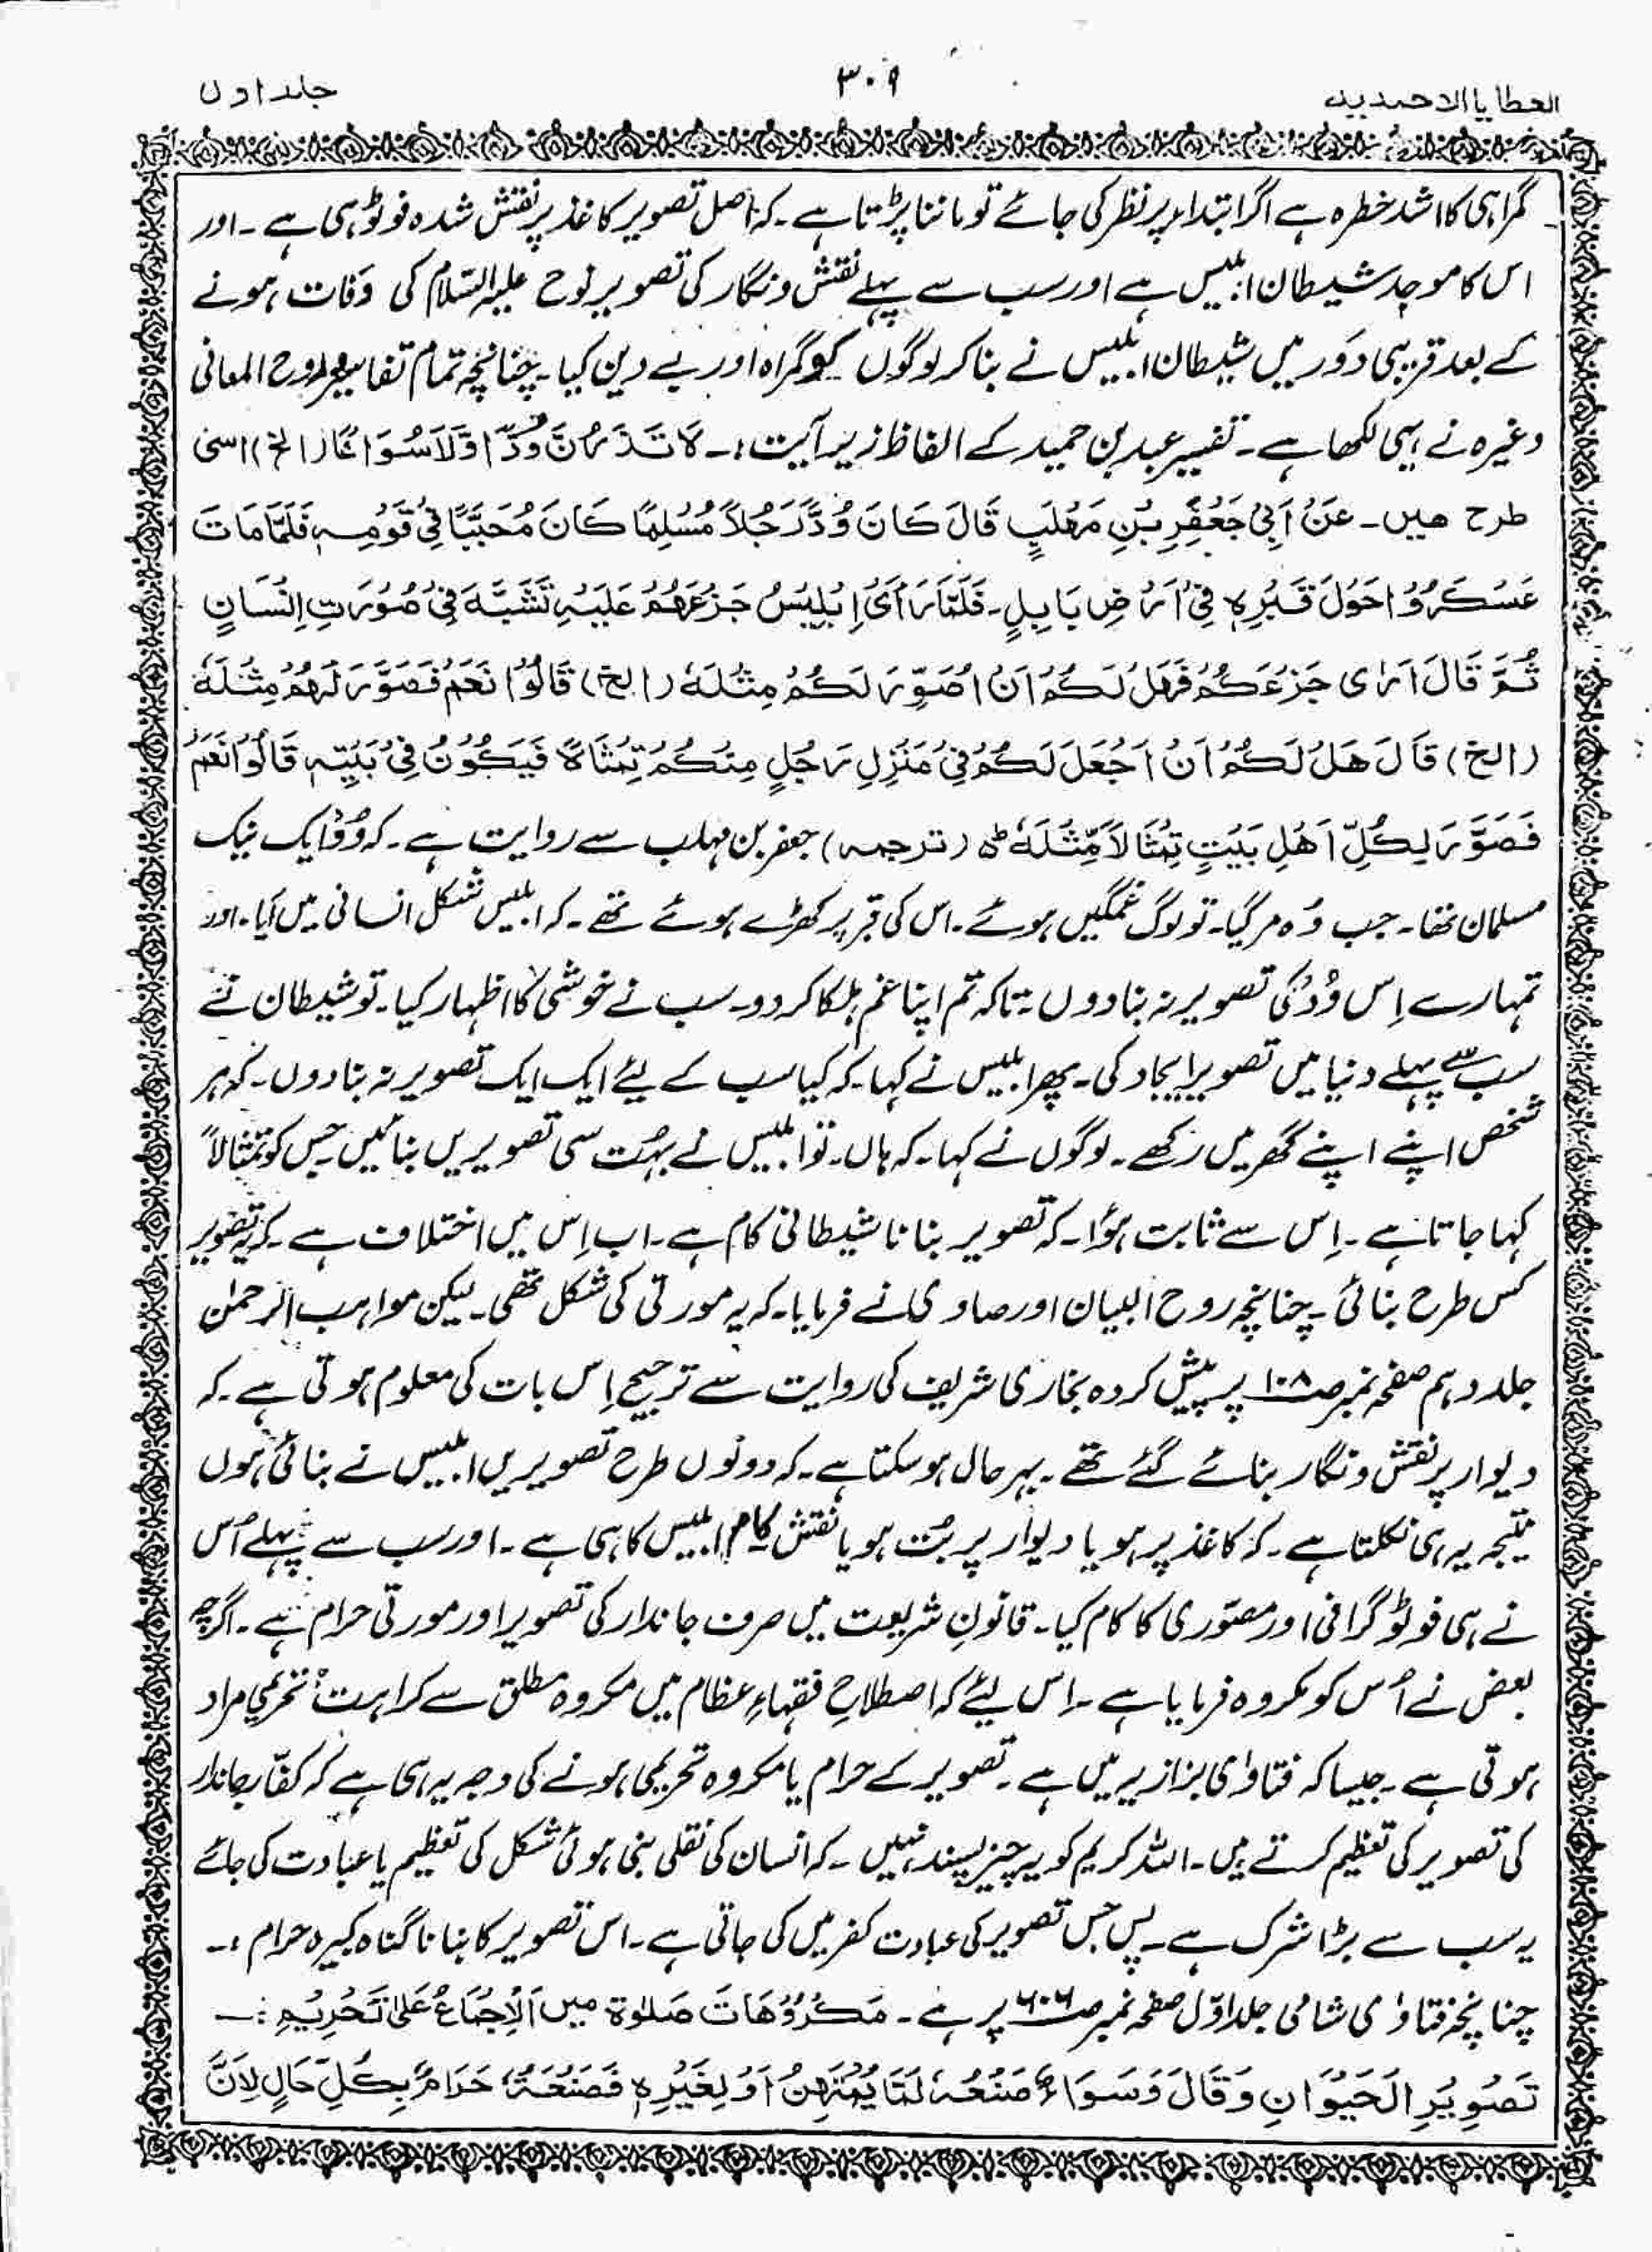 العطایا الاحمدیہ
۳۰۹
جلد اول
گمراہی کا اشد خطرہ ہے اگر ابتداء پر نظر کی جائے تو ماننا پڑتا ہے۔ کہ اصل تصویر کاغذ پر نقش شدہ فوٹو ہی ہے۔ اور
اس کا موجد شیطان ابلیس ہے اور سب سے پہلے نقش و نگار کی تصویر نوح علیہ السّلام کی وفات ہونے
کے بعد قریبی دَور میں شیطان ابلیس نے بنا کر لوگوں کو گمراہ اور بے دین کیا۔ چنانچہ تمام تفاسیر روح المعانی
وغیرہ نے یہی لکھا ہے۔ تفسیر عبد بن حمید کے الفاظ زیر آیت :۔ لَا تَذَرُنَّ وُدًّا وَّلَا سُوَاعًا (الخ) اسی
طرح ھیں۔ عَنْ اَبِیْ جَعْفَرِ بْنِ مَھْلَبٍ قَالَ کَانَ وُدٌّ رَجُلاً مُسْلِمًا کَانَ مُحَبَّبًا فِیْ قَوْمِہٖ فَلَمَّا مَاتَ
عَسْکَرُوْا حَوْلَ قَبْرِہٖ فِیْ اَرْضِ بَابِلٍ۔ فَلَمَّا رَأَیْ اِبْلِیْسُ جَزْعَھُمْ عَلَیْہِ تَشَبَّہَ فِیْ صُوْرَتِ اِنْسَانٍ
ثُمَّ قَالَ اَرٰی جَزْعَکُمْ فَھَلْ لَکُمْ اَنْ اُصَوِّرَ لَکُمْ مِثْلَہٗ (الخ) قَالُوْا نَعَمْ فَصَوَّرَ لَھُمْ مِثْلَہٗ
(الخ) قَالَ ھَلْ لَکُمْ اَنْ اَجْعَلَ لَکُمْ فِیْ مَنْزِلِ رَجُلٍ مِنْکُمْ تِمْثَالًا فَیَکُوْنُ فِیْ بَیْتِہٖ قَالُوْا نَعَمْ
فَصَوَّرَ لِکُلِّ اَھْلِ بَیْتٍ تِمْثَالاً مِّثْلَہٗ ط (ترجمہ) جعفر بن مہلب سے روایت ہے۔ کہ وُدّ ایک نیک
مسلمان تھا۔ جب وُہ مر گیا۔ تو لوگ غمگین ہوئے۔ اس کی قبر پر کھڑے ہوئے تھے۔ کہ ابلیس شکل انسانی میں آیا۔ اور
تمہارے اِس وُدّ کی تصویر نہ بنا دوں۔ تاکہ تم اپنا غم ہلکا کر دو۔ سب نے خوشی کا اظہار کیا۔ تو شیطان نے
سب سے پہلے دنیا میں تصویر ایجاد کی۔ پھر ابلیس نے کہا۔ کہ کیا سب کے لیئے ایک ایک تصویر نہ بنا دوں۔ کہ ہر
شخص اپنے اپنے گھر میں رکھے۔ لوگوں نے کہا۔ کہ ہاں۔ تو ابلیس نے بہُت سی تصویریں بنائیں جس کو تمثالاً
کہا جاتا ہے۔ اِس سے ثابت ہؤا۔ کہ تصویر بنانا شیطانی کام ہے۔ اب اِس میں اختلاف ہے۔ کہ یہ تصویر
کس طرح بنائی۔ چنانچہ روح البیان اور صاوی نے فرمایا۔ کہ یہ مورتی کی شکل تھی۔ لیکن مواہب الرحمٰن
جلد دہم صفحہ نمبر ص۱۰۸ پر پیش کردہ بخاری شریف کی روایت سے ترجیح اِس بات کی معلوم ہوتی ہے۔ کہ
دیوار پر نقش و نگار بنائے گئے تھے۔ بہر حال ہو سکتا ہے۔ کہ دونوں طرح تصویریں ابلیس نے بنائی ہوں
نتیجہ یہ ہی نکلتا ہے۔ کہ کاغذ پر ہو یا دیوار پر بُت ہو یا نقش کام ابلیس کا ہی ہے۔ اور سب سے پہلے اُس
نے ہی فوٹو گرافی اور مصّوری کا کام کیا۔ قانونِ شریعت میں صرف جاندار کی تصویر اور مورتی حرام ہے۔ اگرچہ
بعض نے اُس کو مکروہ فرمایا ہے۔ اس لیئے کہ اصطلاحِ فقہاءِ عظام میں مکروہ مطلق سے کراہت تحریمی مراد
ہوتی ہے۔ جیسا کہ فتاوٰی بزازیہ میں ہے۔ تصویر کے حرام یا مکروہ تحریمی ہونے کی وجہ یہ ہی ہے کہ کفّار جاندار
کی تصویر کی تعظیم کرتے ہیں۔ اللہ کریم کو یہ چیز پسند نہیں۔ کہ انسان کی نقلی بنی ہوئی شکل کی تعظیم یا عبادت کی جائے
یہ سب سے بڑا شرک ہے۔ پس جس تصویر کی عبادت کفر میں کی جاتی ہے۔ اس تصویر کا بنانا گناہ کبیرہ حرام :۔
چنانچہ فتاوٰی شامی جلد اوّل صفحہ نمبر ص۶۰۶ پر ہے۔ مَکْرُوْھَاتَ صَلٰوۃ میں اَلْاِجْمَاعُ عَلیٰ تَحْرِیْمِ :۔
تَصْوِیْرِ الْحَیْوَانِ وَقَالَ وَسَوَاءٌ صَنَعُہٗ لِمَا یُمْتَھِنُ اَوْ لِغَیْرِہٖ فَصَنْعَۃٌ حَرَامٌ بِکُلِّ حَالٍ لِاَنَّ